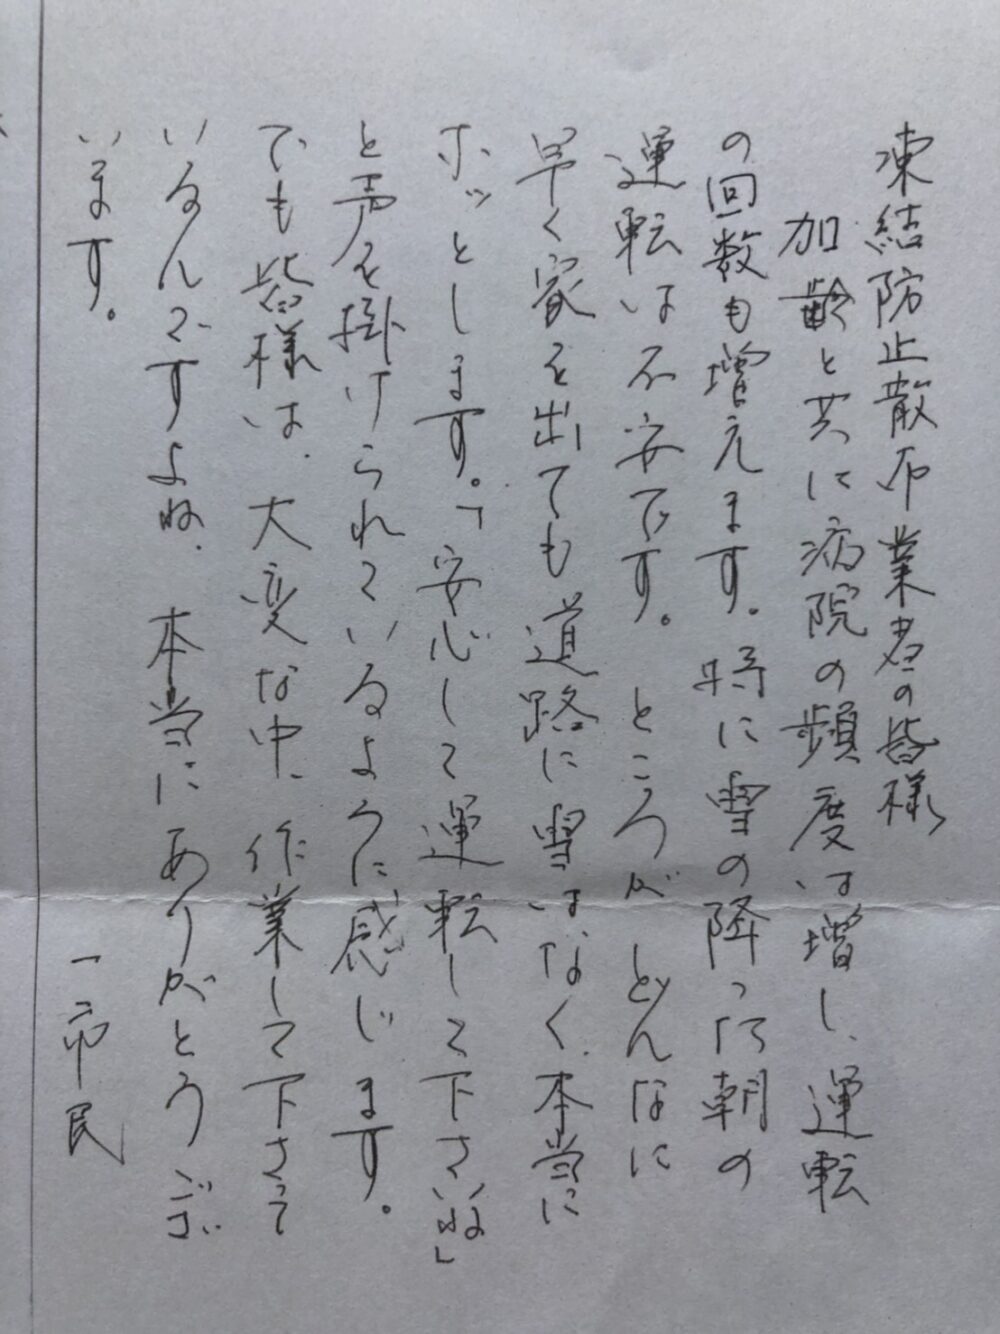 凍結防止散布業者の皆様
加齢と共に病院の頻度は増し、運転
の回数も増えます。時に雪の降った朝の
運転は不安です。ところがどんなに
早く家を出ても道路に雪はなく、本当に
ホッとします。「安心して運転して下さいね」
と声を掛けられているように感じます。
でも皆様は、大変な中、作業して下さって
いるんですよね、本当にありがとうござ
います。
一市民